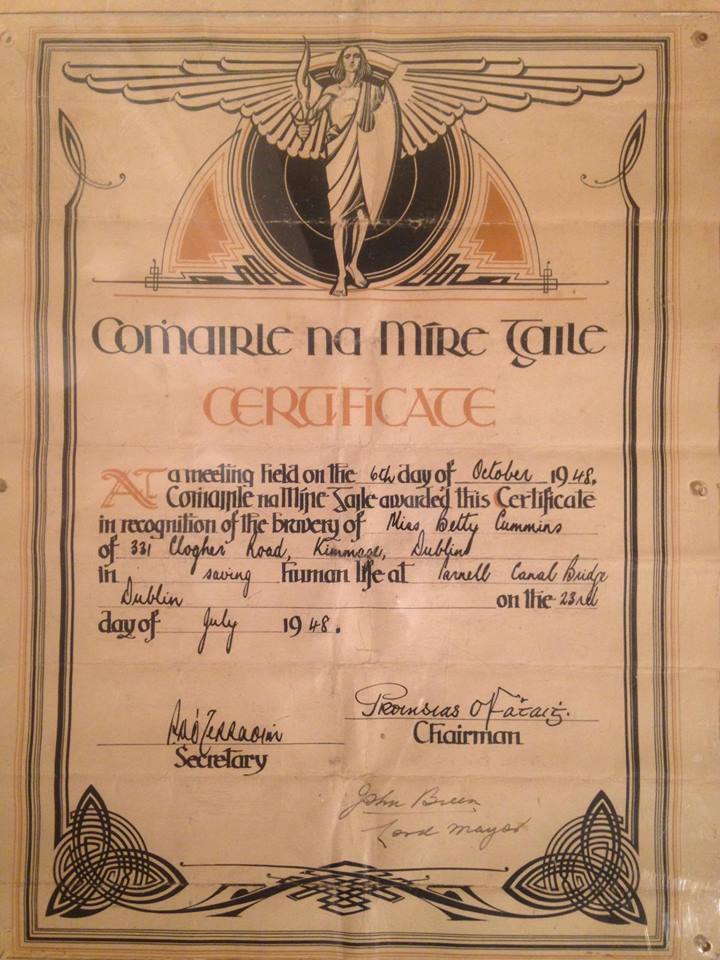 Coṁairle na Míre Gaile
CERTIFICATE
At a meeting held on the 6th day of October 1948.
Coṁairle na Míre Gaile awarded this Certificate
in recognition of the bravery of Miss Betty Cummins
of 331 Clogher Road, Kimmage, Dublin
in saving human life at Parnell Canal Bridge
Dublin on the 23rd
day of July 1948.
Proinsias
Secretary Chairman
John Breen
Lord Mayor